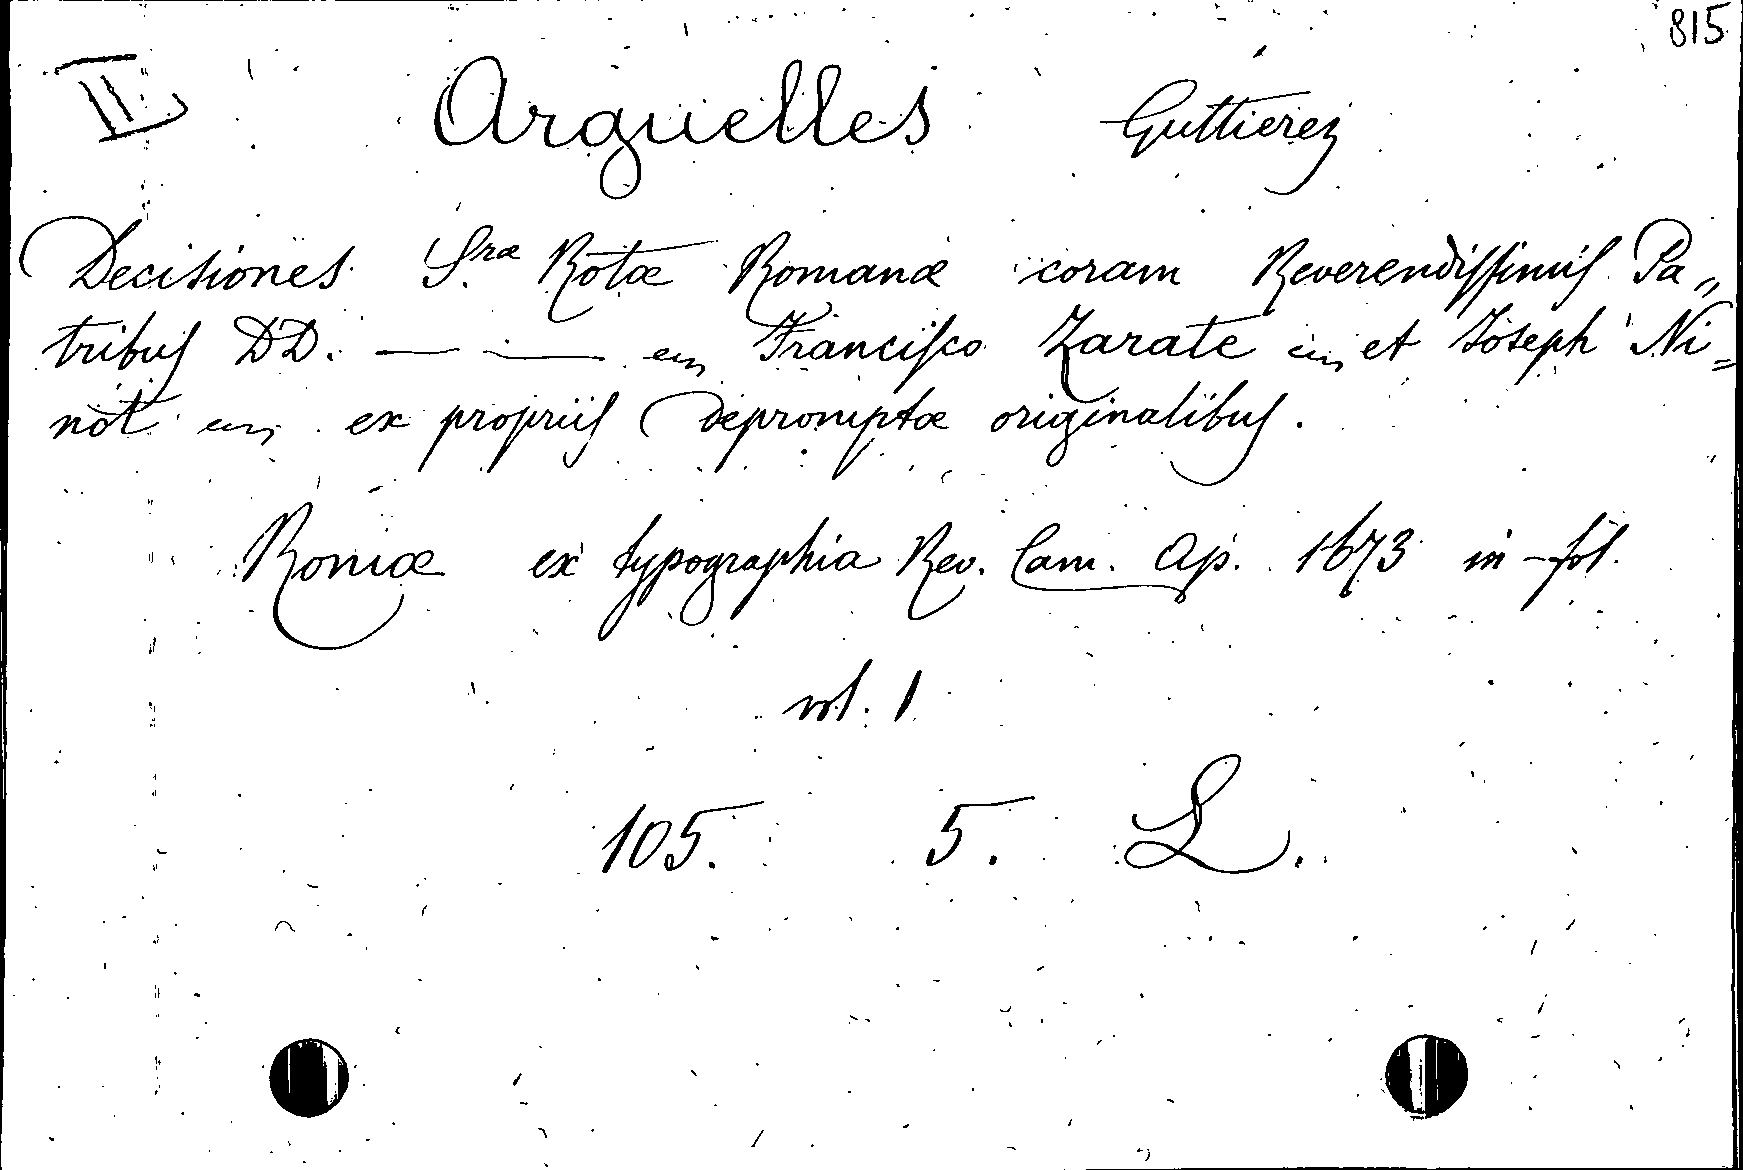 815
II Arguelles Guttierez
Decisiones S.rae Rotae Romanae coram Reverendissimis Pa„
tribus DD. — — Francisco Zarate et Joseph Ni=
not ex propriis depromptae originalibus.
Romae ex typographia Rev. Cam. Ap. 1673 in-fol.
vol. 1
105. 5. L.